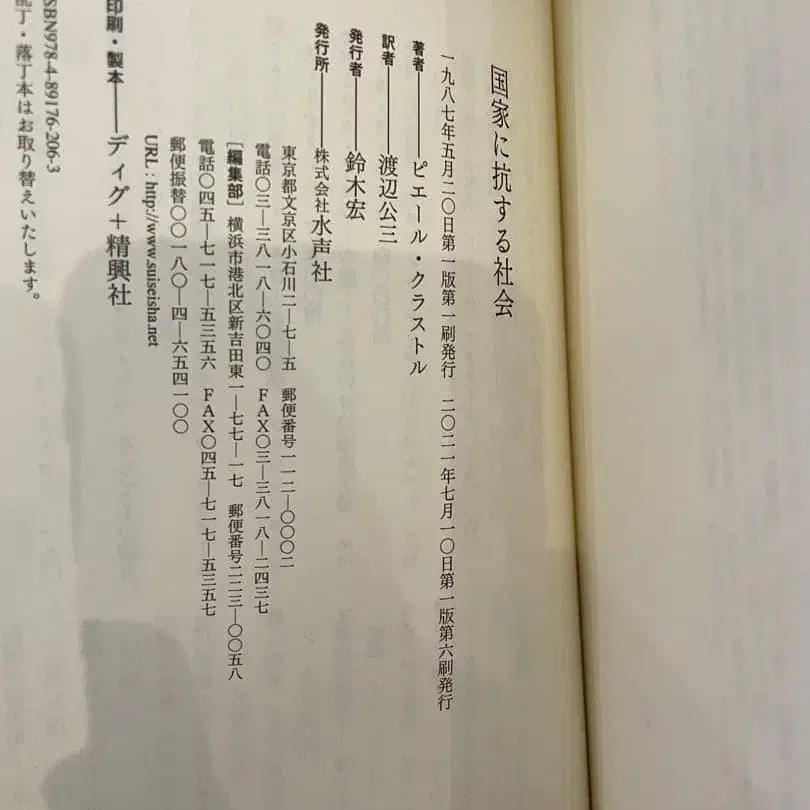 国家に抗する社会
一九八七年五月二〇日第一版第一刷発行　二〇二一年七月一〇日第一版第六刷発行
著者――ピエール・クラストル
訳者――渡辺公三
発行者――鈴木宏
発行所――株式会社水声社
東京都文京区小石川二―七―五　郵便番号一一二―〇〇〇二
電話〇三―三八一八―六〇四〇　FAX〇三―三八一八―二四三七
［編集部］横浜市港北区新吉田東一―七七―一七　郵便番号二二三―〇〇五八
電話〇四五―七一七―五三五六　FAX〇四五―七一七―五三五七
郵便振替〇〇一八〇―四―六五四一〇〇
URL : http://www.suiseisha.net
印刷・製本――ディグ＋精興社
ISBN978-4-89176-206-3
乱丁・落丁本はお取り替えいたします。